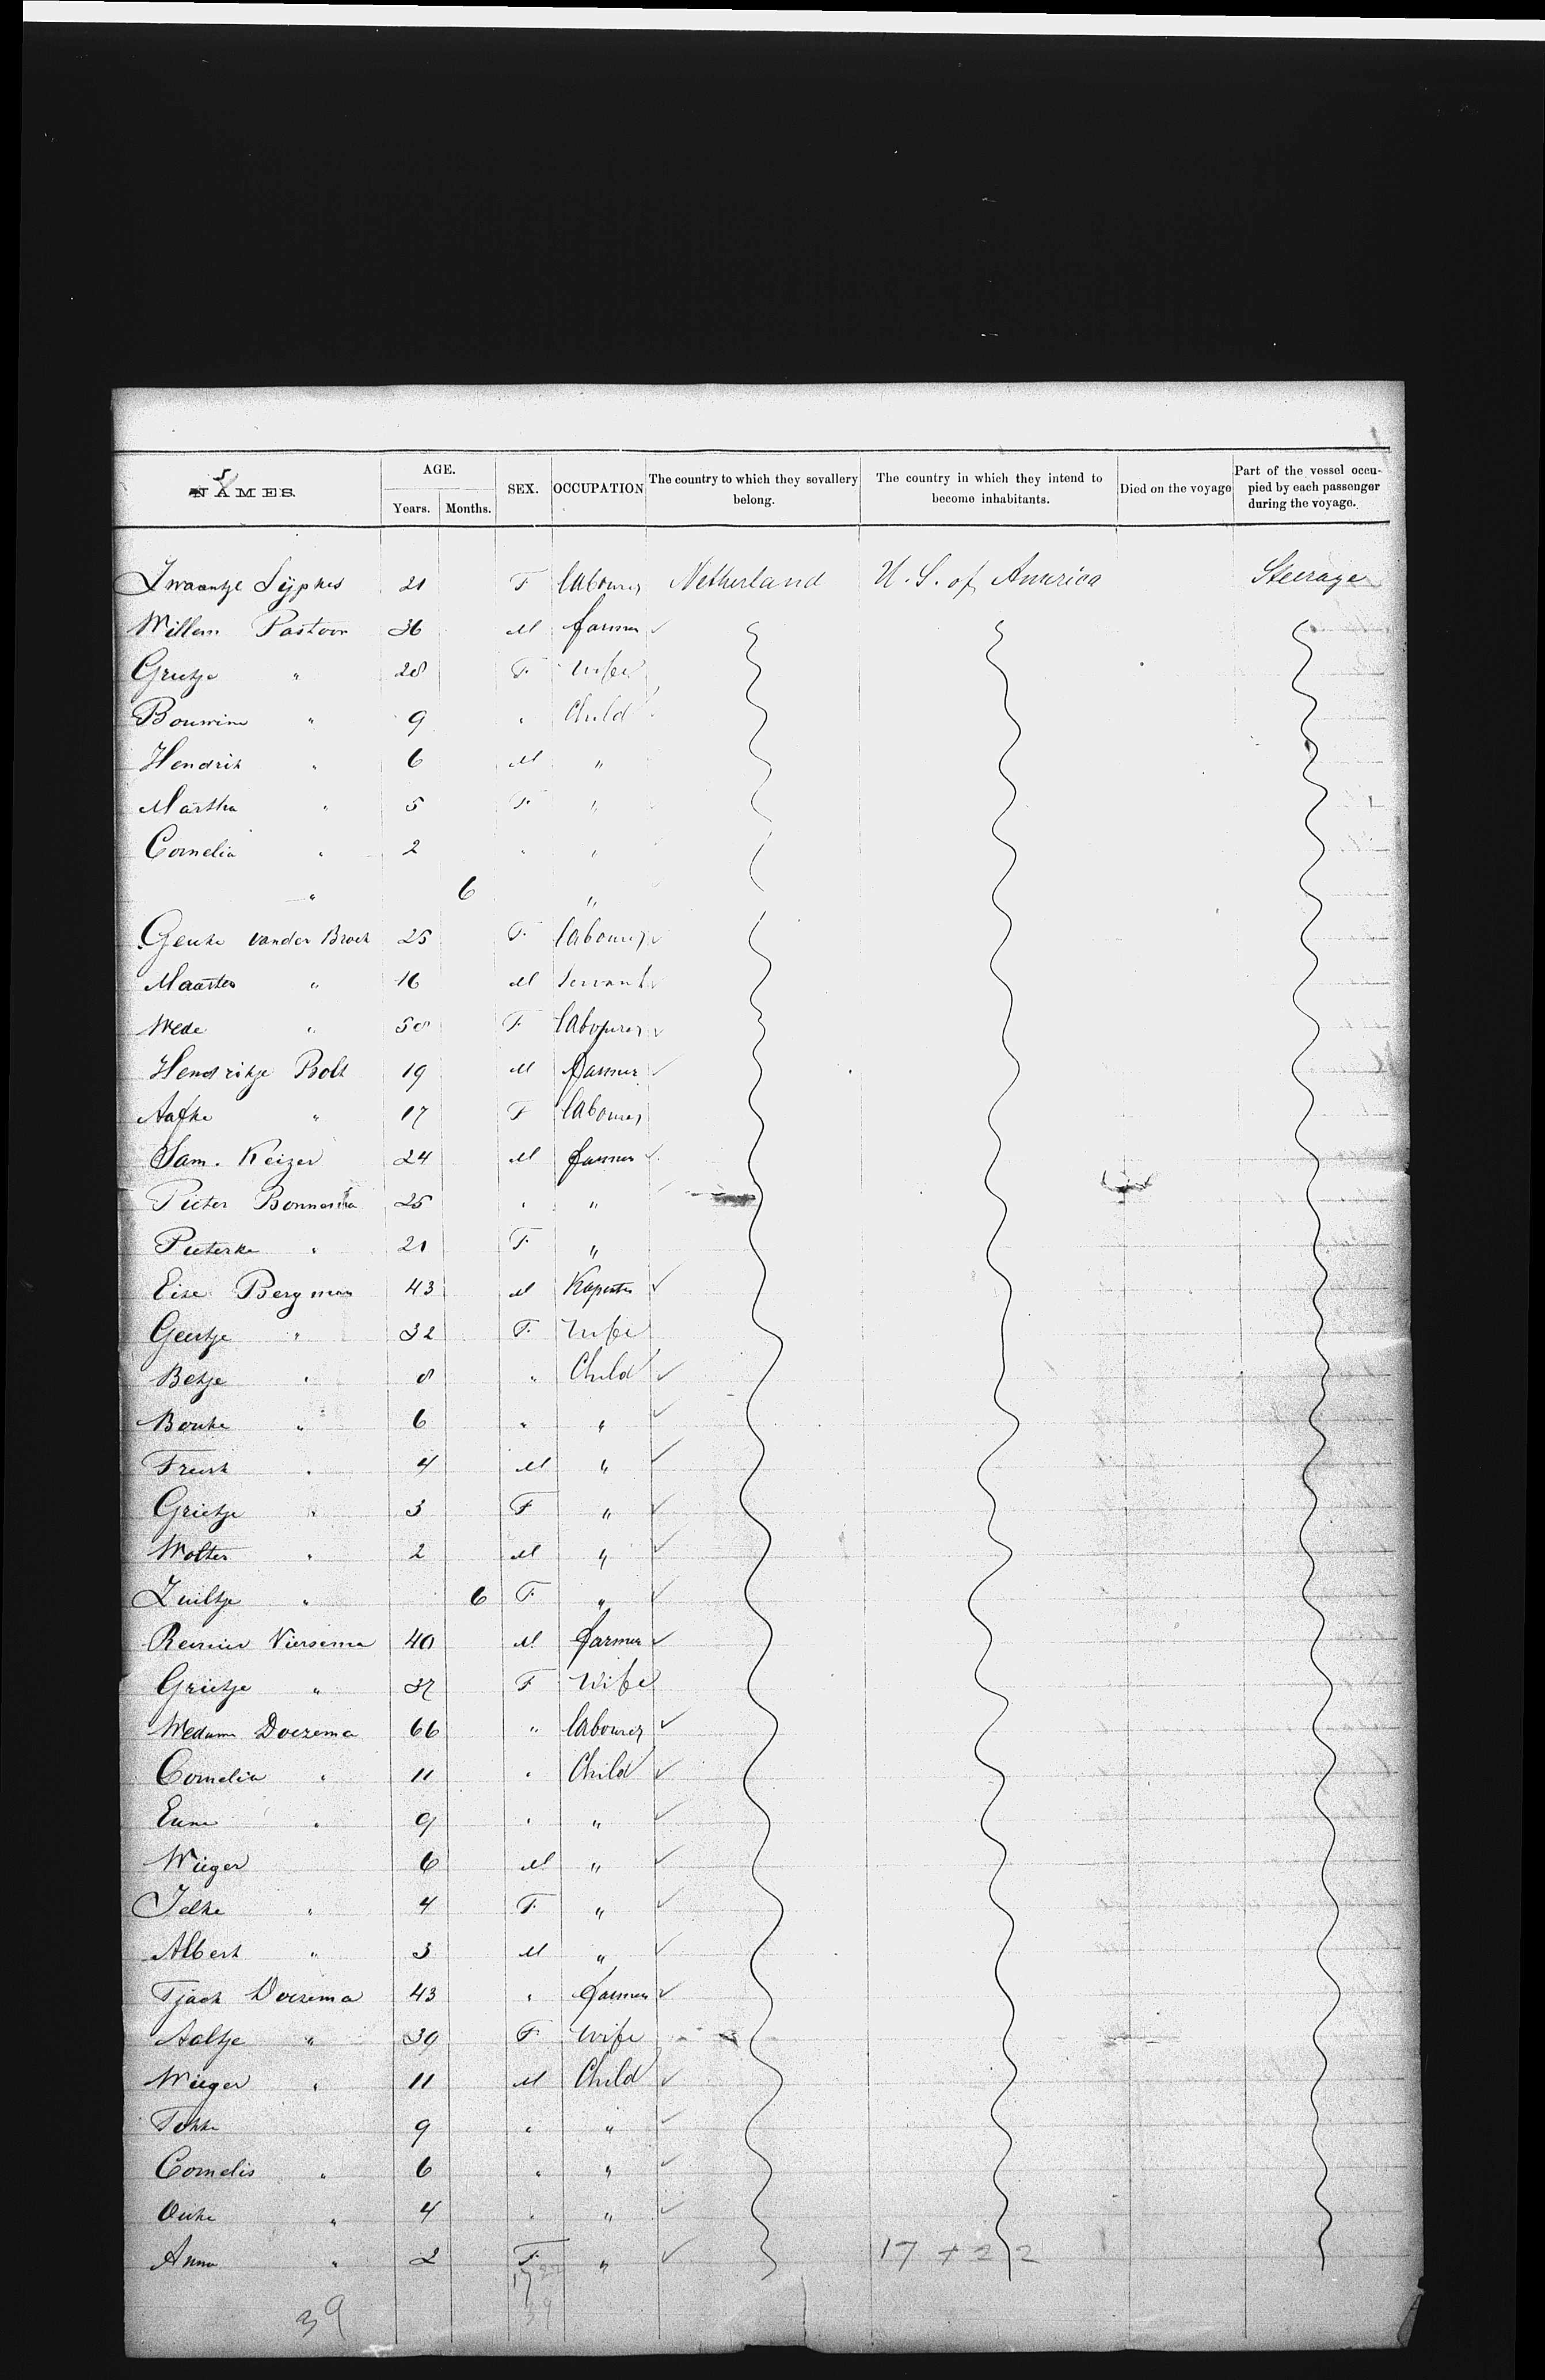 5
NAMES.
AGE.
Years. Months.
SEX.
OCCUPATION
The country to which they sevallery belong.
The country in which they intend to become inhabitants.
Died on the voyage
Part of the vessel occupied by each passenger during the voyage.
Zwaantje Sijpkes 21 F labourer Netherland U. S. of America Steerage
Willem Pastoor 36 M farmer ✓
Grietje " 28 F. wife
Bouwina " 9 " Child
Hendrik " 6 M "
Martha " 5 F "
Cornelia " 2 " "
" 6 "
Geuke van der Broek 25 F. labourer ✓
Maarten " 16 M Servant ✓
Wede " 50 F labourer ✓
Hendrikje Bolt 19 M farmer ✓
Aafke " 17 F labourer
Sam. Keizer 24 M farmer ✓
Pieter Bonnema 25 " "
Pieterke " 21 F. "
Eise Bergman 43 M Kapenter ✓
Geertje " 32 F. Wife
Betje " 8 " Child ✓
Bouke " 6 " " ✓
Freerk " 4 M " ✓
Grietje " 3 F " ✓
Wolter " 2 M " ✓
Zuiltje " 6 F. " ✓
Reinier Viersema 40 M farmer ✓
Grietje " 37 F Wife
Doezema 66 " labourer ✓
Cornelia " 11 " Child ✓
" 9 " " ✓
Wieger 6 M " ✓
Jelke " 4 F. " ✓
Albert " 3 M " ✓
Tjack Doezema 43 " farmer ✓
Aaltje " 30 F Wife
Wieger " 11 M Child ✓
Fokke 9 " " ✓
Cornelis " 6 " " ✓
" 4 " " ✓
Anna " 2 F. " ✓ 17 + 22
17 22
39 39